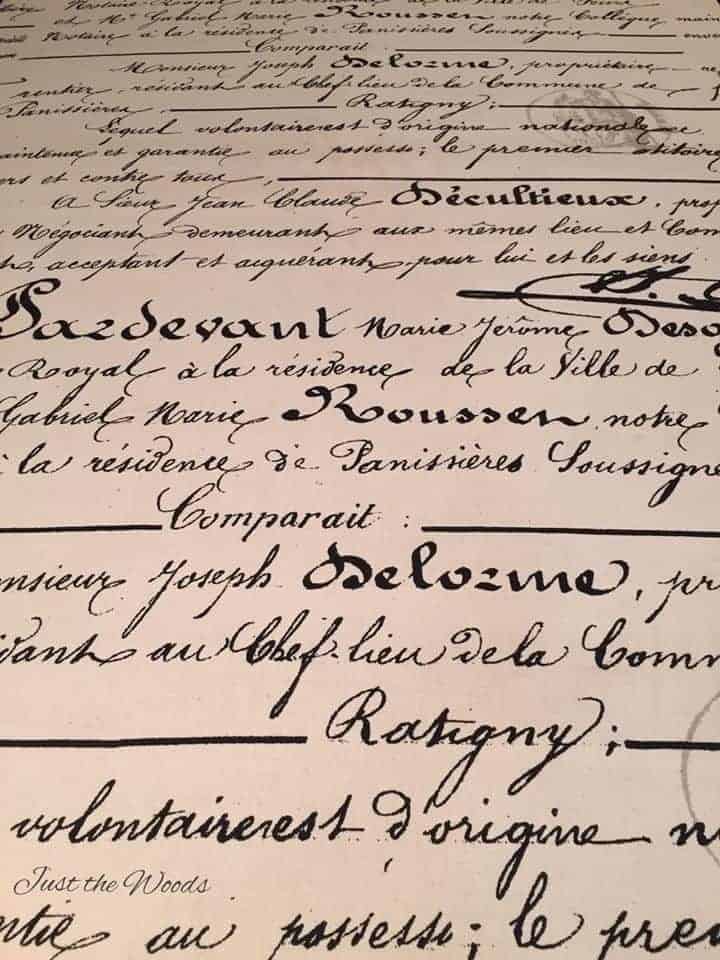 Notaire Royal à la résidence de la Ville de
et Me Gabriel Marie Roussen notre Collègue
Notaire à la résidence de Panissières Soussigné
Comparait
Monsieur Joseph Delorme, propriétaire
rentier, résidant au Chef-lieu de la Commune de
Panissières Ratigny;
Lequel volontairerest d'origine nationale
maintenue et garantie au possessi; le premier
ers et contre toux,
A Sieur Jean Claude Décultieux, prop
Négociant demeurant aux mêmes lieu et Com
t, acceptant et aiquérant, pour lui et les siens.
Pardevant Marie Jérôme Deso
Royal à la résidence de la Ville de
Gabriel Marie Roussen notre
à la résidence de Panissières Soussigné
Comparait :
onsieur Joseph Delorme, pr
idant au Chef-lieu de la Comm
Ratigny;
volontairerest d'origine n
Just the Woods
ntie au possessi; le prem